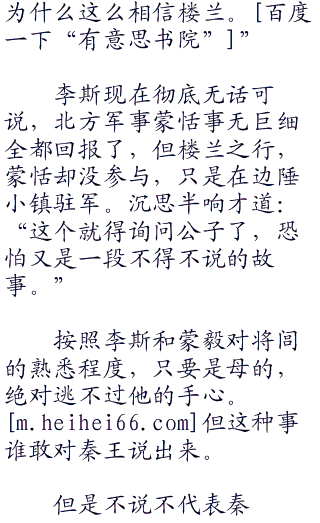 为什么这么相信楼兰。[百度
一下“有意思书院”]”
李斯现在彻底无话可
说，北方军事蒙恬事无巨细
全都回报了，但楼兰之行，
蒙恬却没参与，只是在边陲
小镇驻军。沉思半响才道：
“这个就得询问公子了，恐
怕又是一段不得不说的故
事。”
按照李斯和蒙毅对将闾
的熟悉程度，只要是母的，
绝对逃不过他的手心。
[m.heihei66.com]但这种事
谁敢对秦王说出来。
但是不说不代表秦